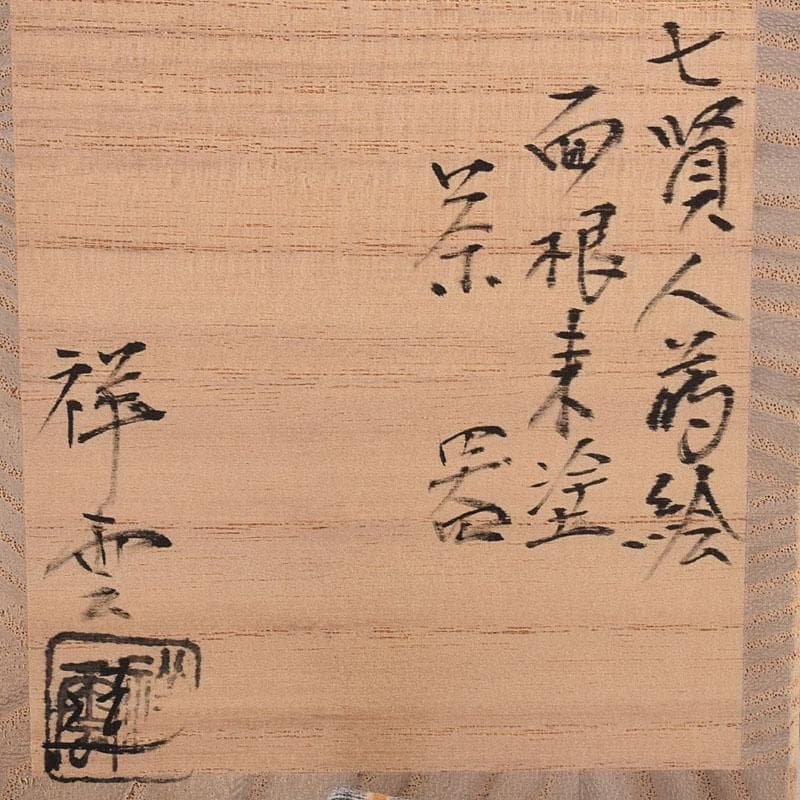 七賢人蒔絵
面根来塗
茶器
祥雲